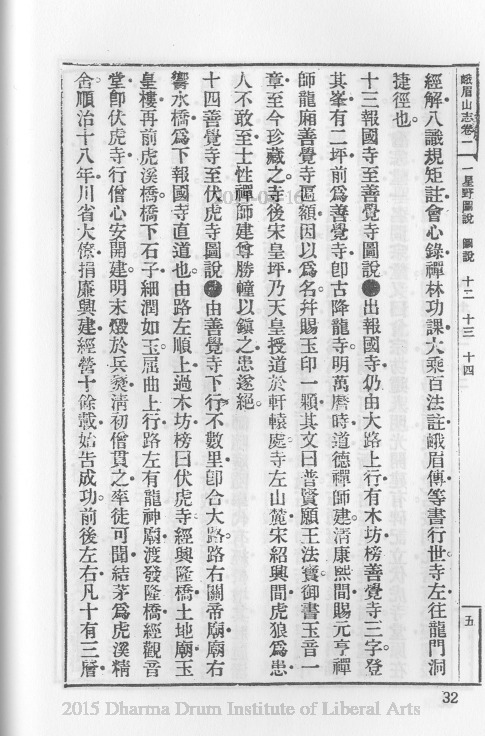 峨眉山志卷二　一星野圖說　圖說　十二　十三　十四
五
經解八識規矩註會心錄禪林功課大乘百法註峨眉傳等書行世。寺左往龍門洞
捷徑也。
十三報國寺至善覺寺圖說●出報國寺仍由大路上行有木坊榜善覺寺三字。登
其峯有二坪前爲善覺寺卽古降龍寺。明萬曆時道德禪師建。淸康熙間賜元亨禪
師龍廟善覺寺匾額因以爲名。幷賜玉印一顆其文曰普賢願王法寶。御書玉音一
章至今珍藏之。寺後宋皇坪乃天皇授道於軒轅處。寺左山麓宋紹興間虎狼爲患
人不敢至士性禪師建尊勝幢以鎭之患遂絕。
十四善覺寺至伏虎寺圖說●由善覺寺下行不數里卽合大路。路右關帝廟廟右
響水橋爲下報國寺直道也。由路左順上過木坊榜曰伏虎寺經興隆橋土地廟玉
皇樓再前虎溪橋橋下石子細潤如玉。屈曲上行路左有龍神廟渡發隆橋經觀音
堂卽伏虎寺。行僧心安開建。明末燬於兵燹淸初僧貫之率徒可聞結茅爲虎溪精
舍順治十八年川省大僚捐廉興建經營十餘載始告成功。前後左右凡十有三層
32
2015 Dharma Drum Institute of Liberal Arts